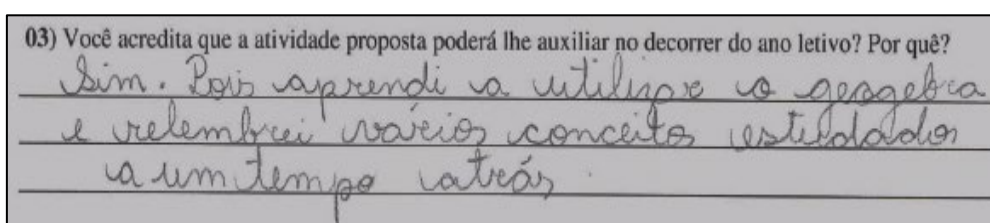 03) Você acredita que a atividade proposta poderá lhe auxiliar no decorrer do ano letivo? Por quê?
Sim. Pois aprendi a utilizar o geogebra
e relembrei vários conceitos estudados
a um tempo atrás.